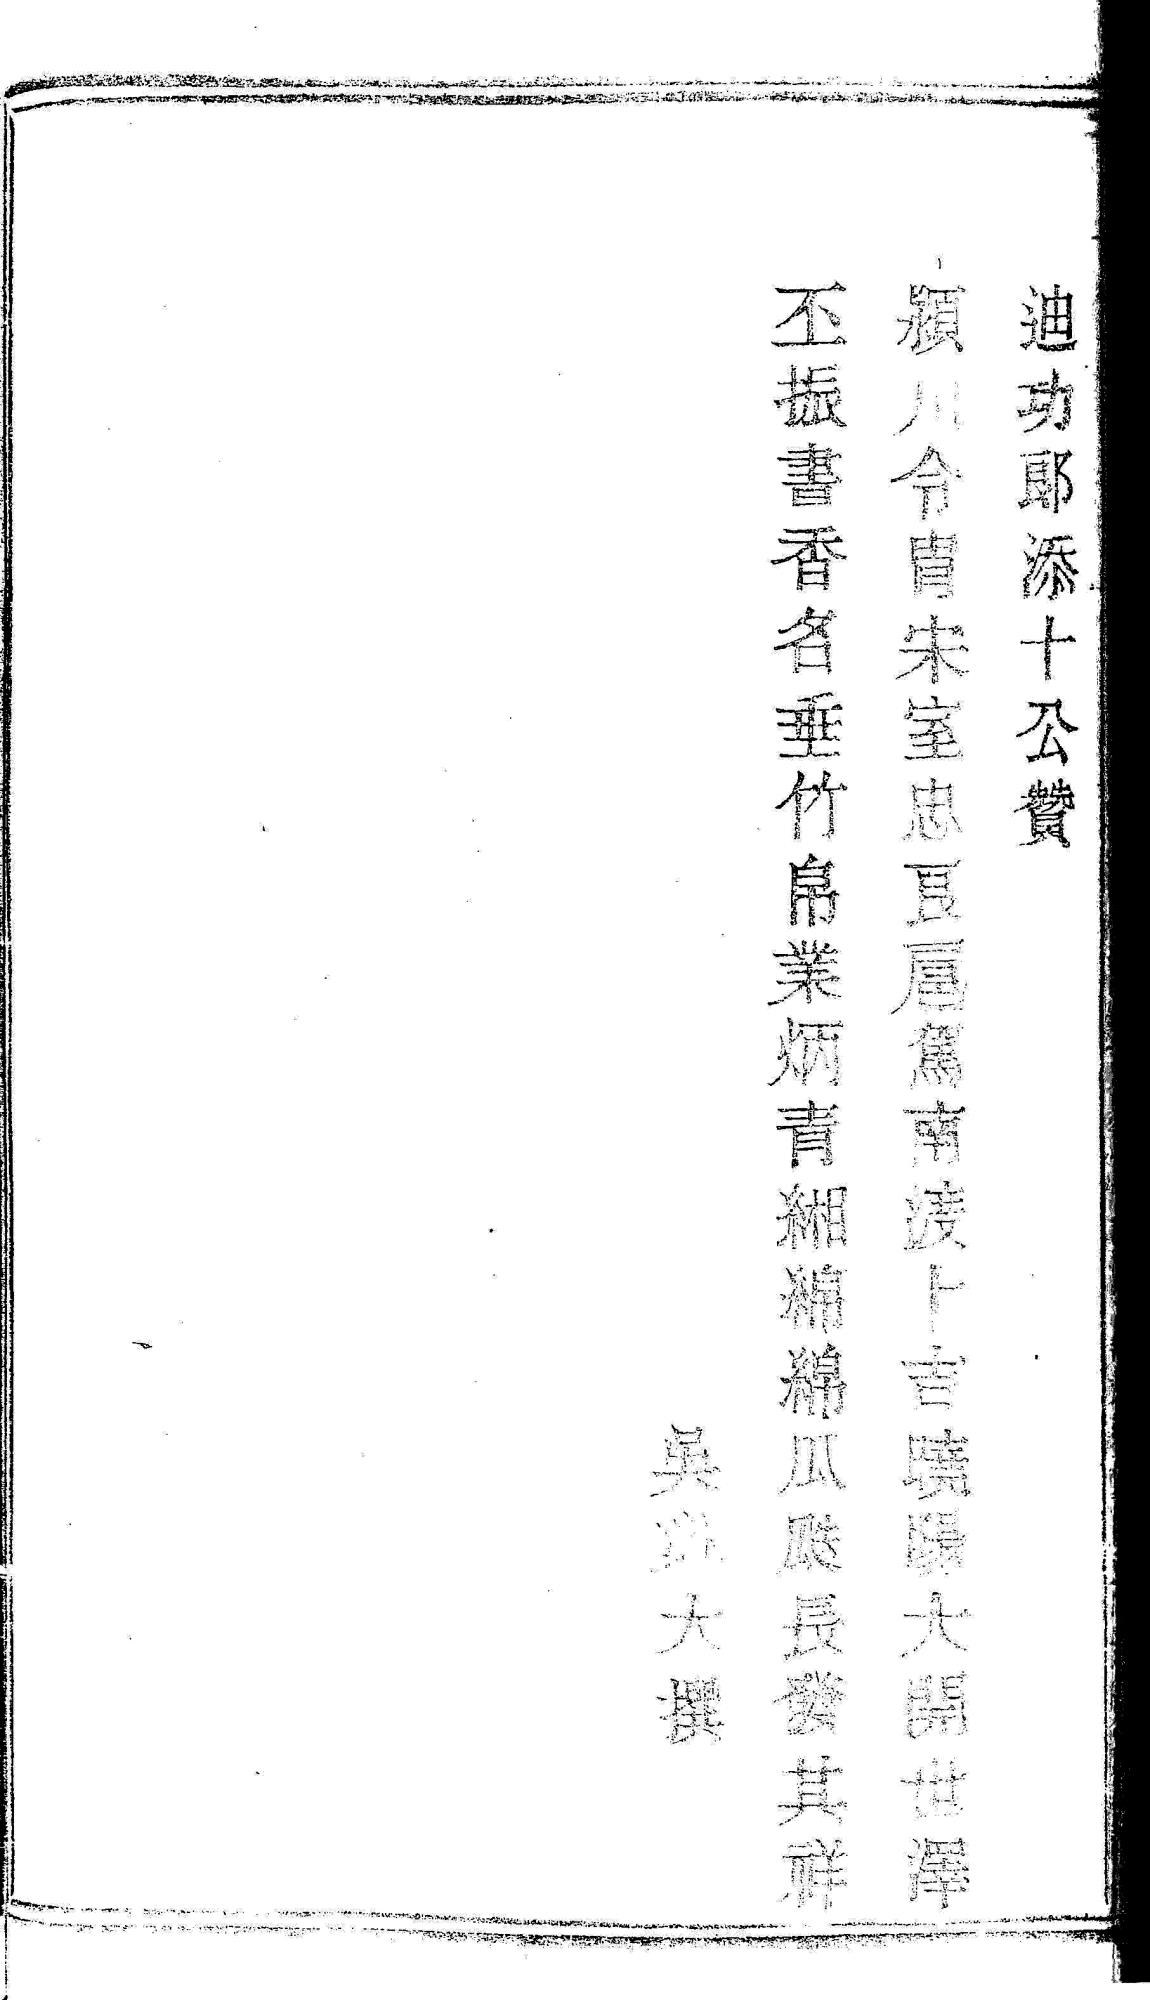 迪功郎添十公贊
潁川令胄宋室忠良扈駕南渡卜吉璜陽大開世澤
丕振書香名垂竹帛業炳青緗綿綿瓜瓞長發其祥
吳 大撰